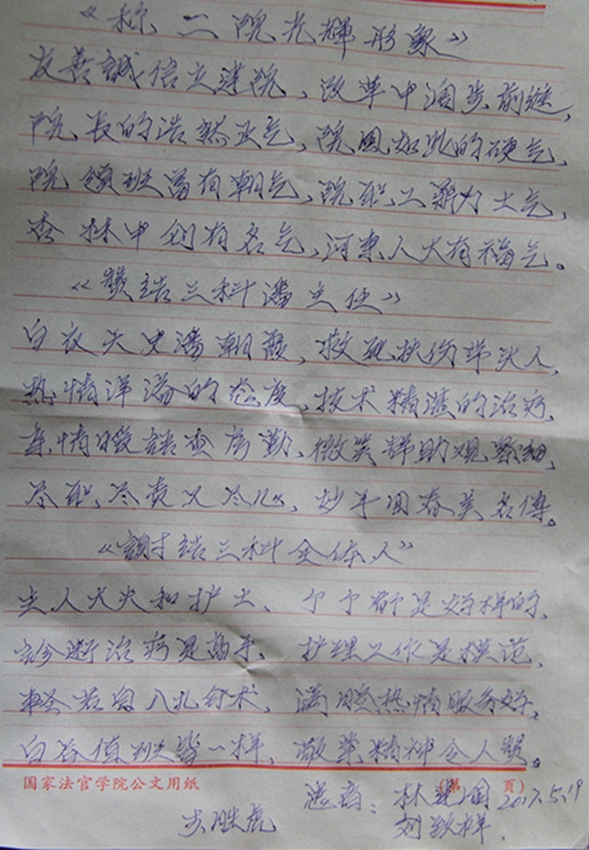 《称二院光辉形象》
友善誠信立建院，改革中阔步前进，
院长的浩然正气，院风如此的硬气，
院领班富有朝气，院职工鼎力士气，
杏林中创有名气，河东人大有福气。
《赞结三科潘主任》
白衣天史潘朝霞，救死扶伤
热情洋溢的态度，技术精湛的治疗，
真情暖语查房勤，微笑
尽职尽责又尽心，妙手回春美名传。
《謝结三科全体人》
主人大夫和护士、个个都是好样的，
诊断治疗是高手，护理工作是模范，
轻若自入扎针术，满腔热情服务好，
白夜值班皆一样，敬业精神令人赞。
国家法官学院公文用纸 (第 页)
林 2017.5.19
刘致祥